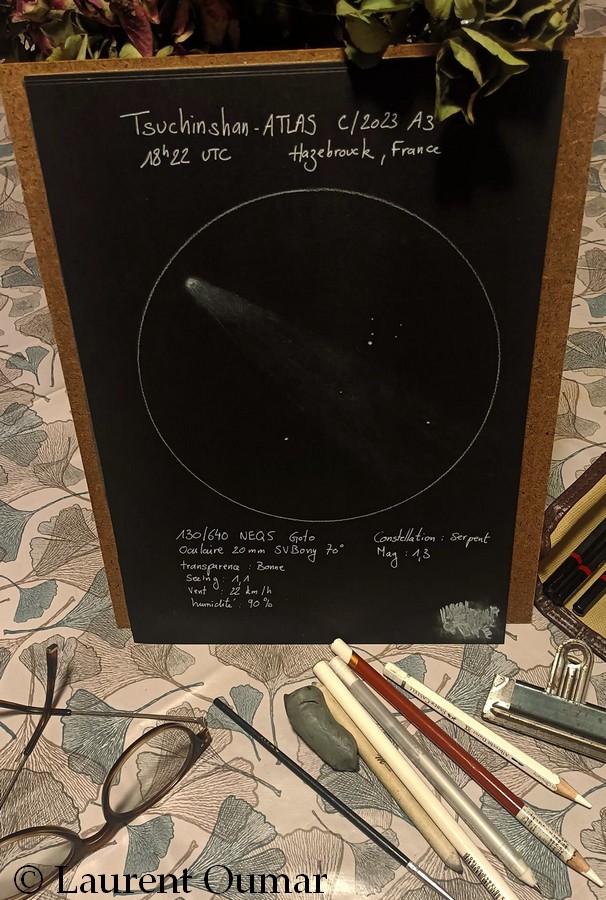 Tsuchinshan-ATLAS C/2023 A3
18h22 UTC Hazebrouck, France
130/640 NEQ5 Goto
Oculaire 20mm SVBony 70°
transparence : Bonne
Seeing : 1,1
Vent : 22 km/h
humidité : 90%
Constellation : Serpent
Mag : 1,3
© Laurent Oumar